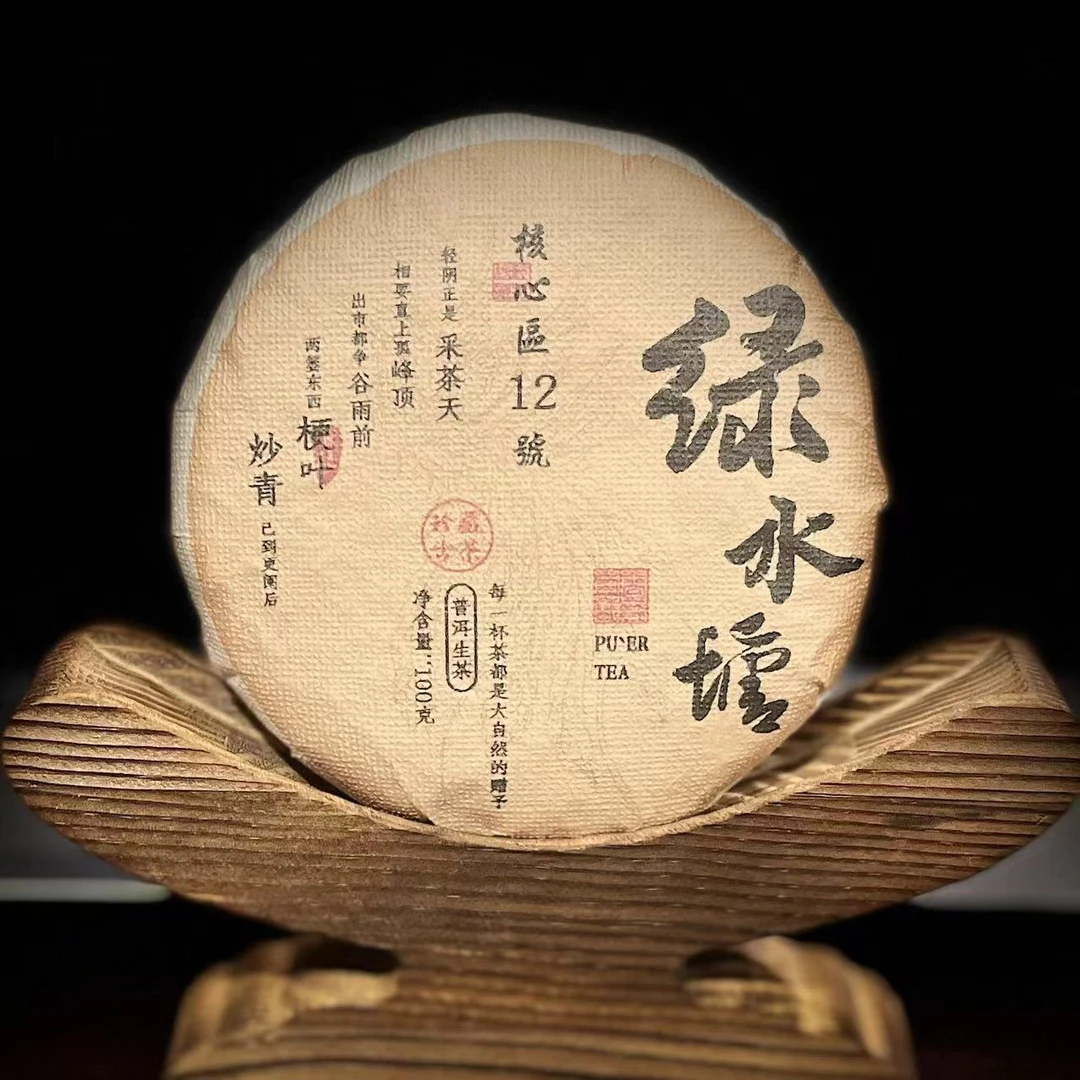 绿水塘
PU`ER
TEA
核心區12號
轻阴正是采茶天
相要真上孤峰顶
出市都争谷雨前
两筥东西梗叶
炒青己到更阑后
每一杯茶都是大自然的赠予
普洱生茶
净含量:100克